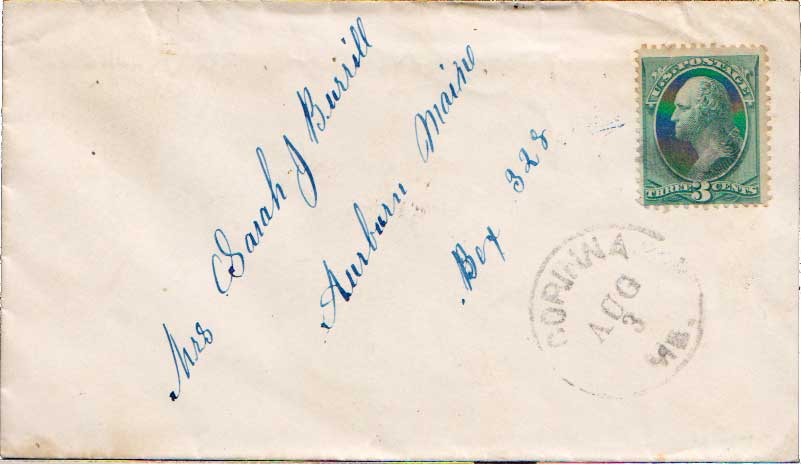 Mrs Sarah J Burrill
Aurburn Maine
Box 328
U.S. POSTAGE
THREE 3 CENTS
CORINNA
AUG
3
ME.